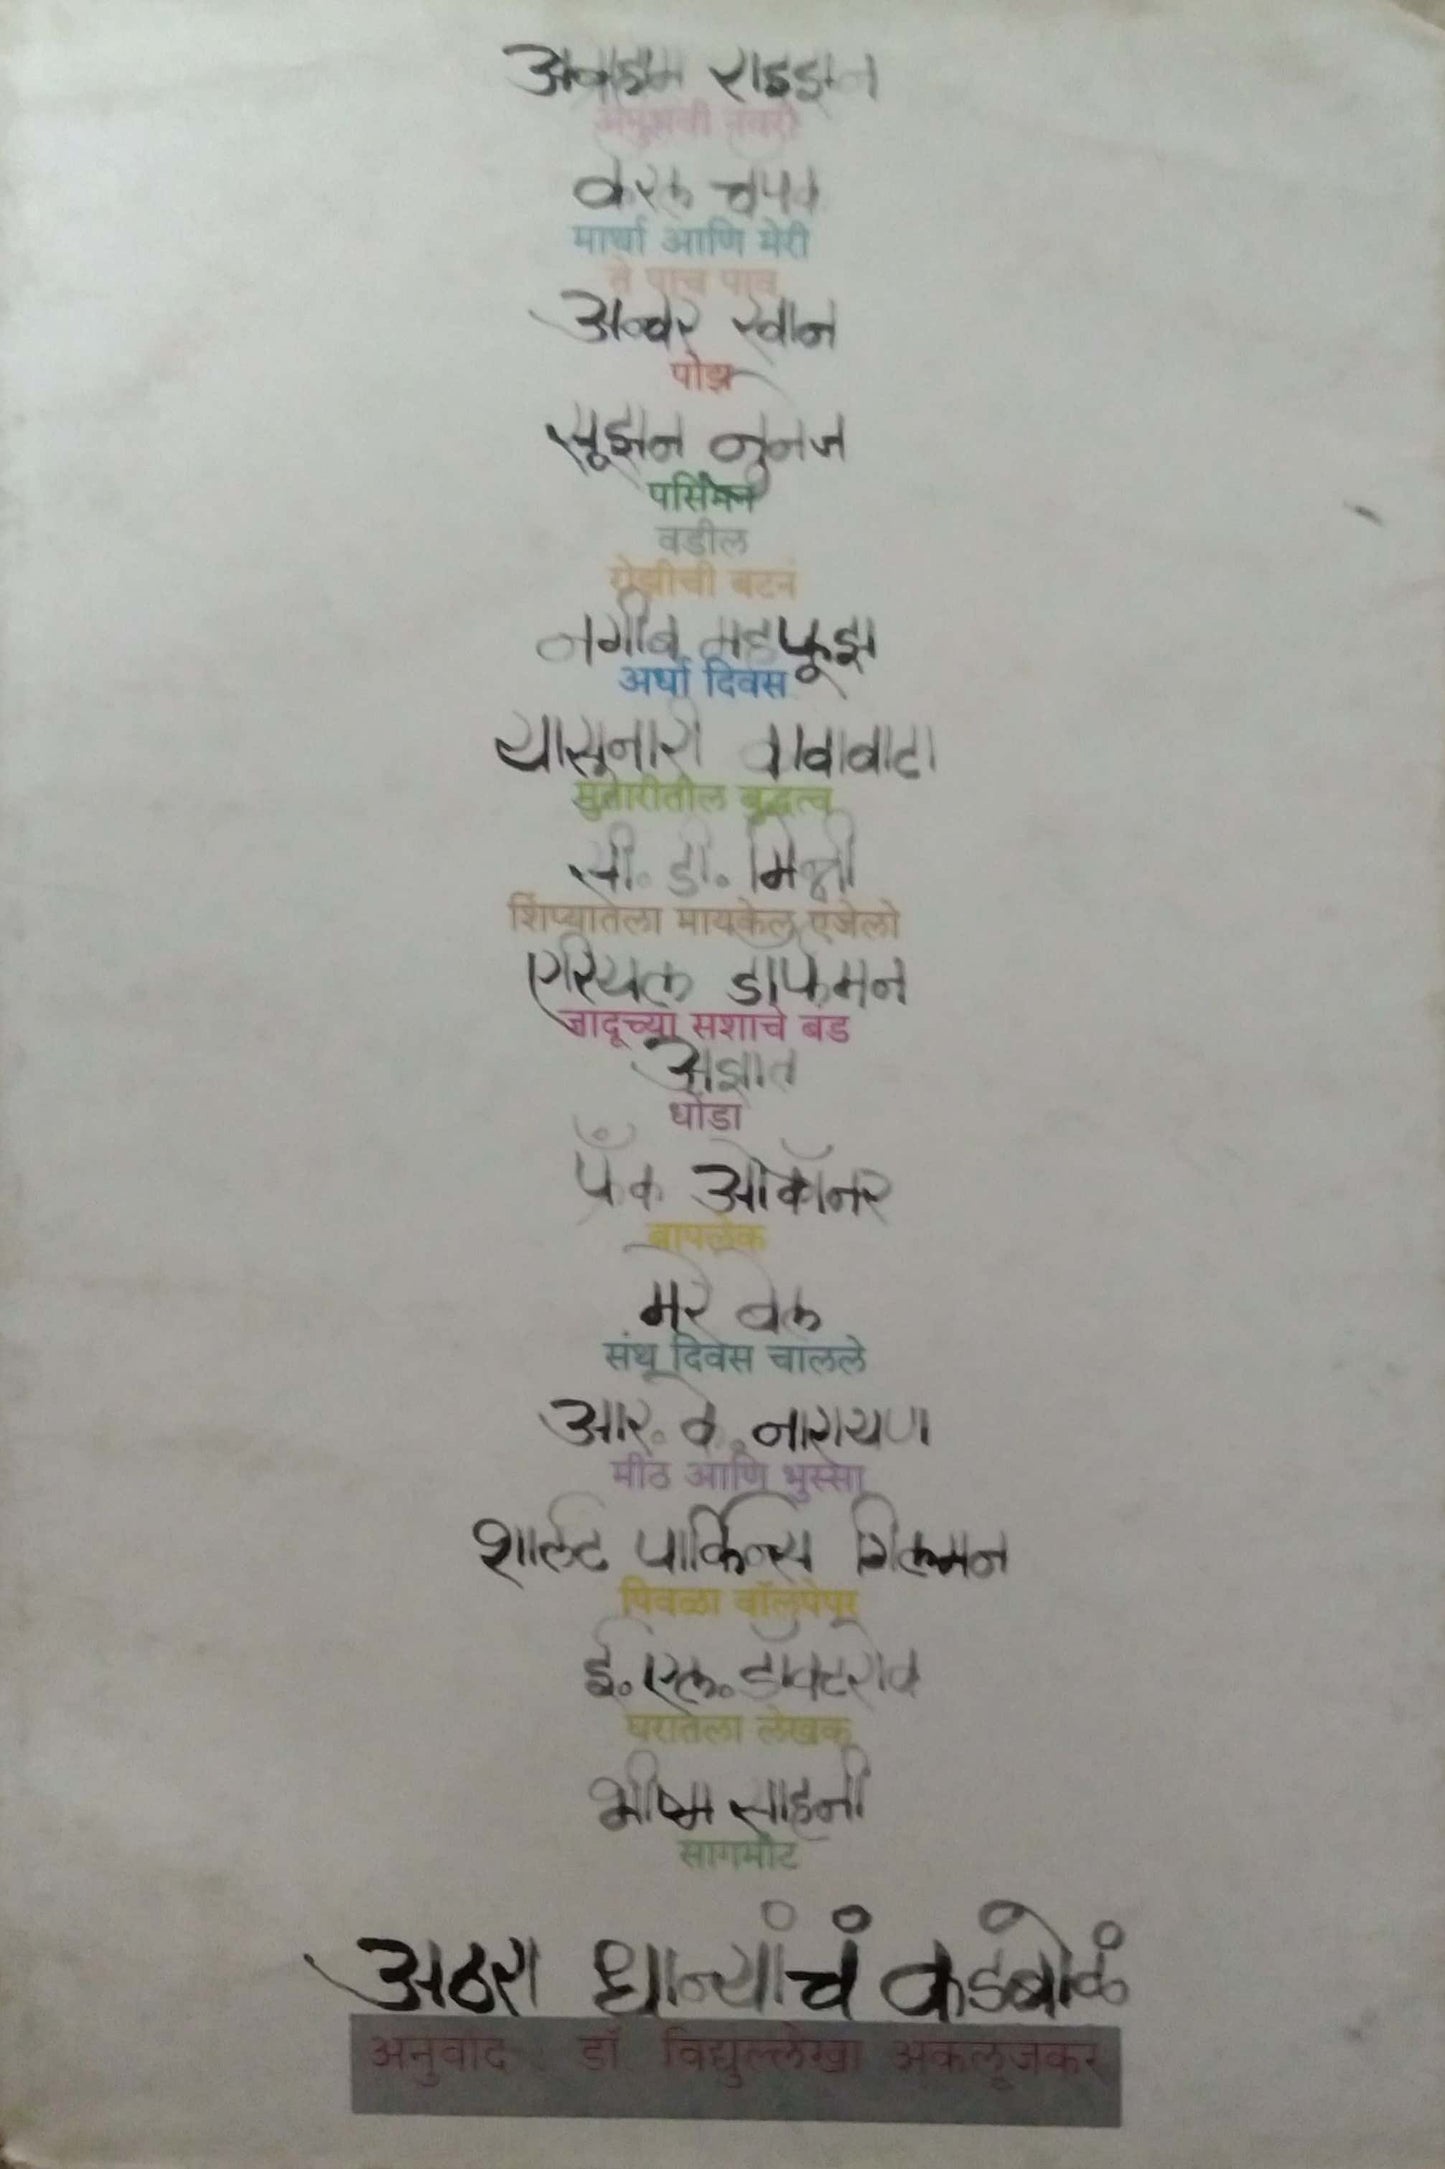 अब्राहम राइझन
अनुभवी नवरी
केरल चॅपक
मार्था आणि मेरी
ते पाच पाव
अन्वर खान
पोझ
सूझन नुनेज
पर्सिमन
वडील
ग्रेझीची बटनं
नगीब महफूझ
अर्धा दिवस
यासूनारी कावाबाटा
मुतारीतील बुद्धत्व
सी. डी. मिश्री
शिंप्यातला मायकेल एंजेलो
एरियल डॉर्फमन
जादूच्या सशाचे बंड
अज्ञात
धोंडा
फ्रँक ओकॉनर
बापलेक
मरे बेल
संथ दिवस चालले
आर. के. नारायण
मीठ आणि भुस्सा
शार्लट पार्किन्स गिलमन
पिवळा वॉलपेपर
ई. एल. डॉक्टरोव
घरातला लेखक
भीष्म साहनी
सागमीट
अठरा धान्यांचं कडबोळं
अनुवाद : डॉ. विद्युल्लेखा अकलूजकर